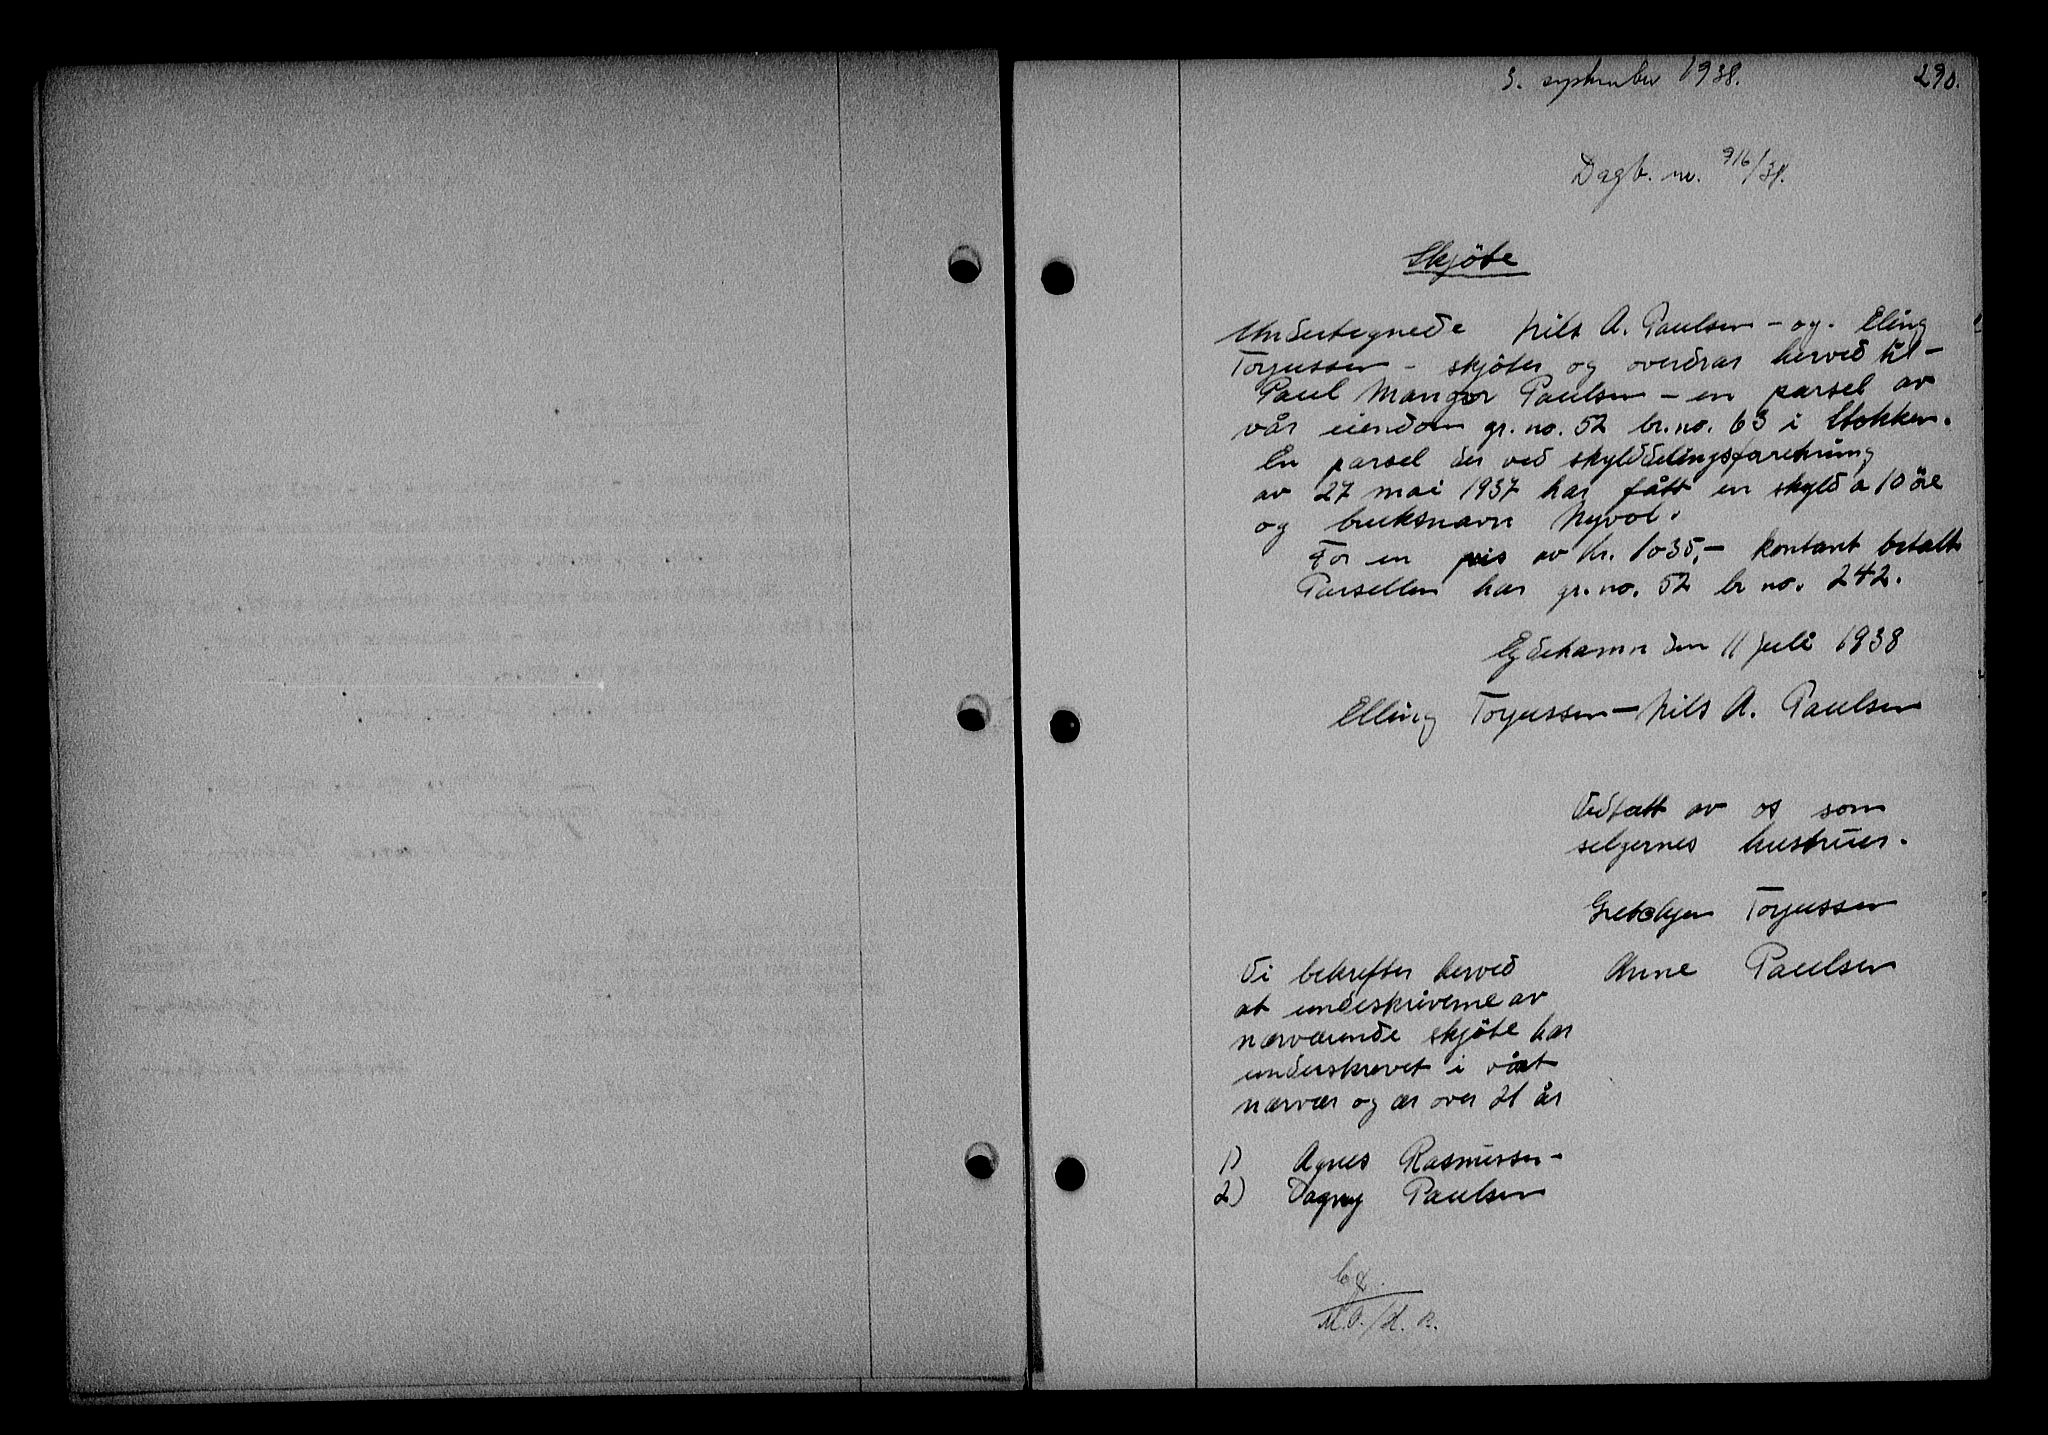 3. september 1938. 290.
Dagb. nr. 916/38.
Skjöte
Undertegnede Nils A. Paulsen - og. Eling
Torjussen - skjöter og overdrar herved til -
Paul Mangor Paulsen - en parsel av
vår eiendom gr. no. 52 br. no. 63 i Stokken.
En parsel der ved skylddelingsforretning
av 27 mai 1937 har fått en skyld a 10 öre
og bruksnavn Nyvol.
For en pris av Kr. 1035,- kontant betalt
Parsellen har gr. no. 52 br no. 242.
Eydehamn den 11 Juli 1938
Elling Torjussen - Nils A. Paulsen
Vedtatt av os som
selgernes hustruer.
Torjussen
Anne Paulsen
Vi bekrefter herved
at underskriverne av
nærværende skjöte har
underskrevet i vårt
nærvær og er over 21 år
1) Agnes Rasmussen -
2) Dagny Paulsen